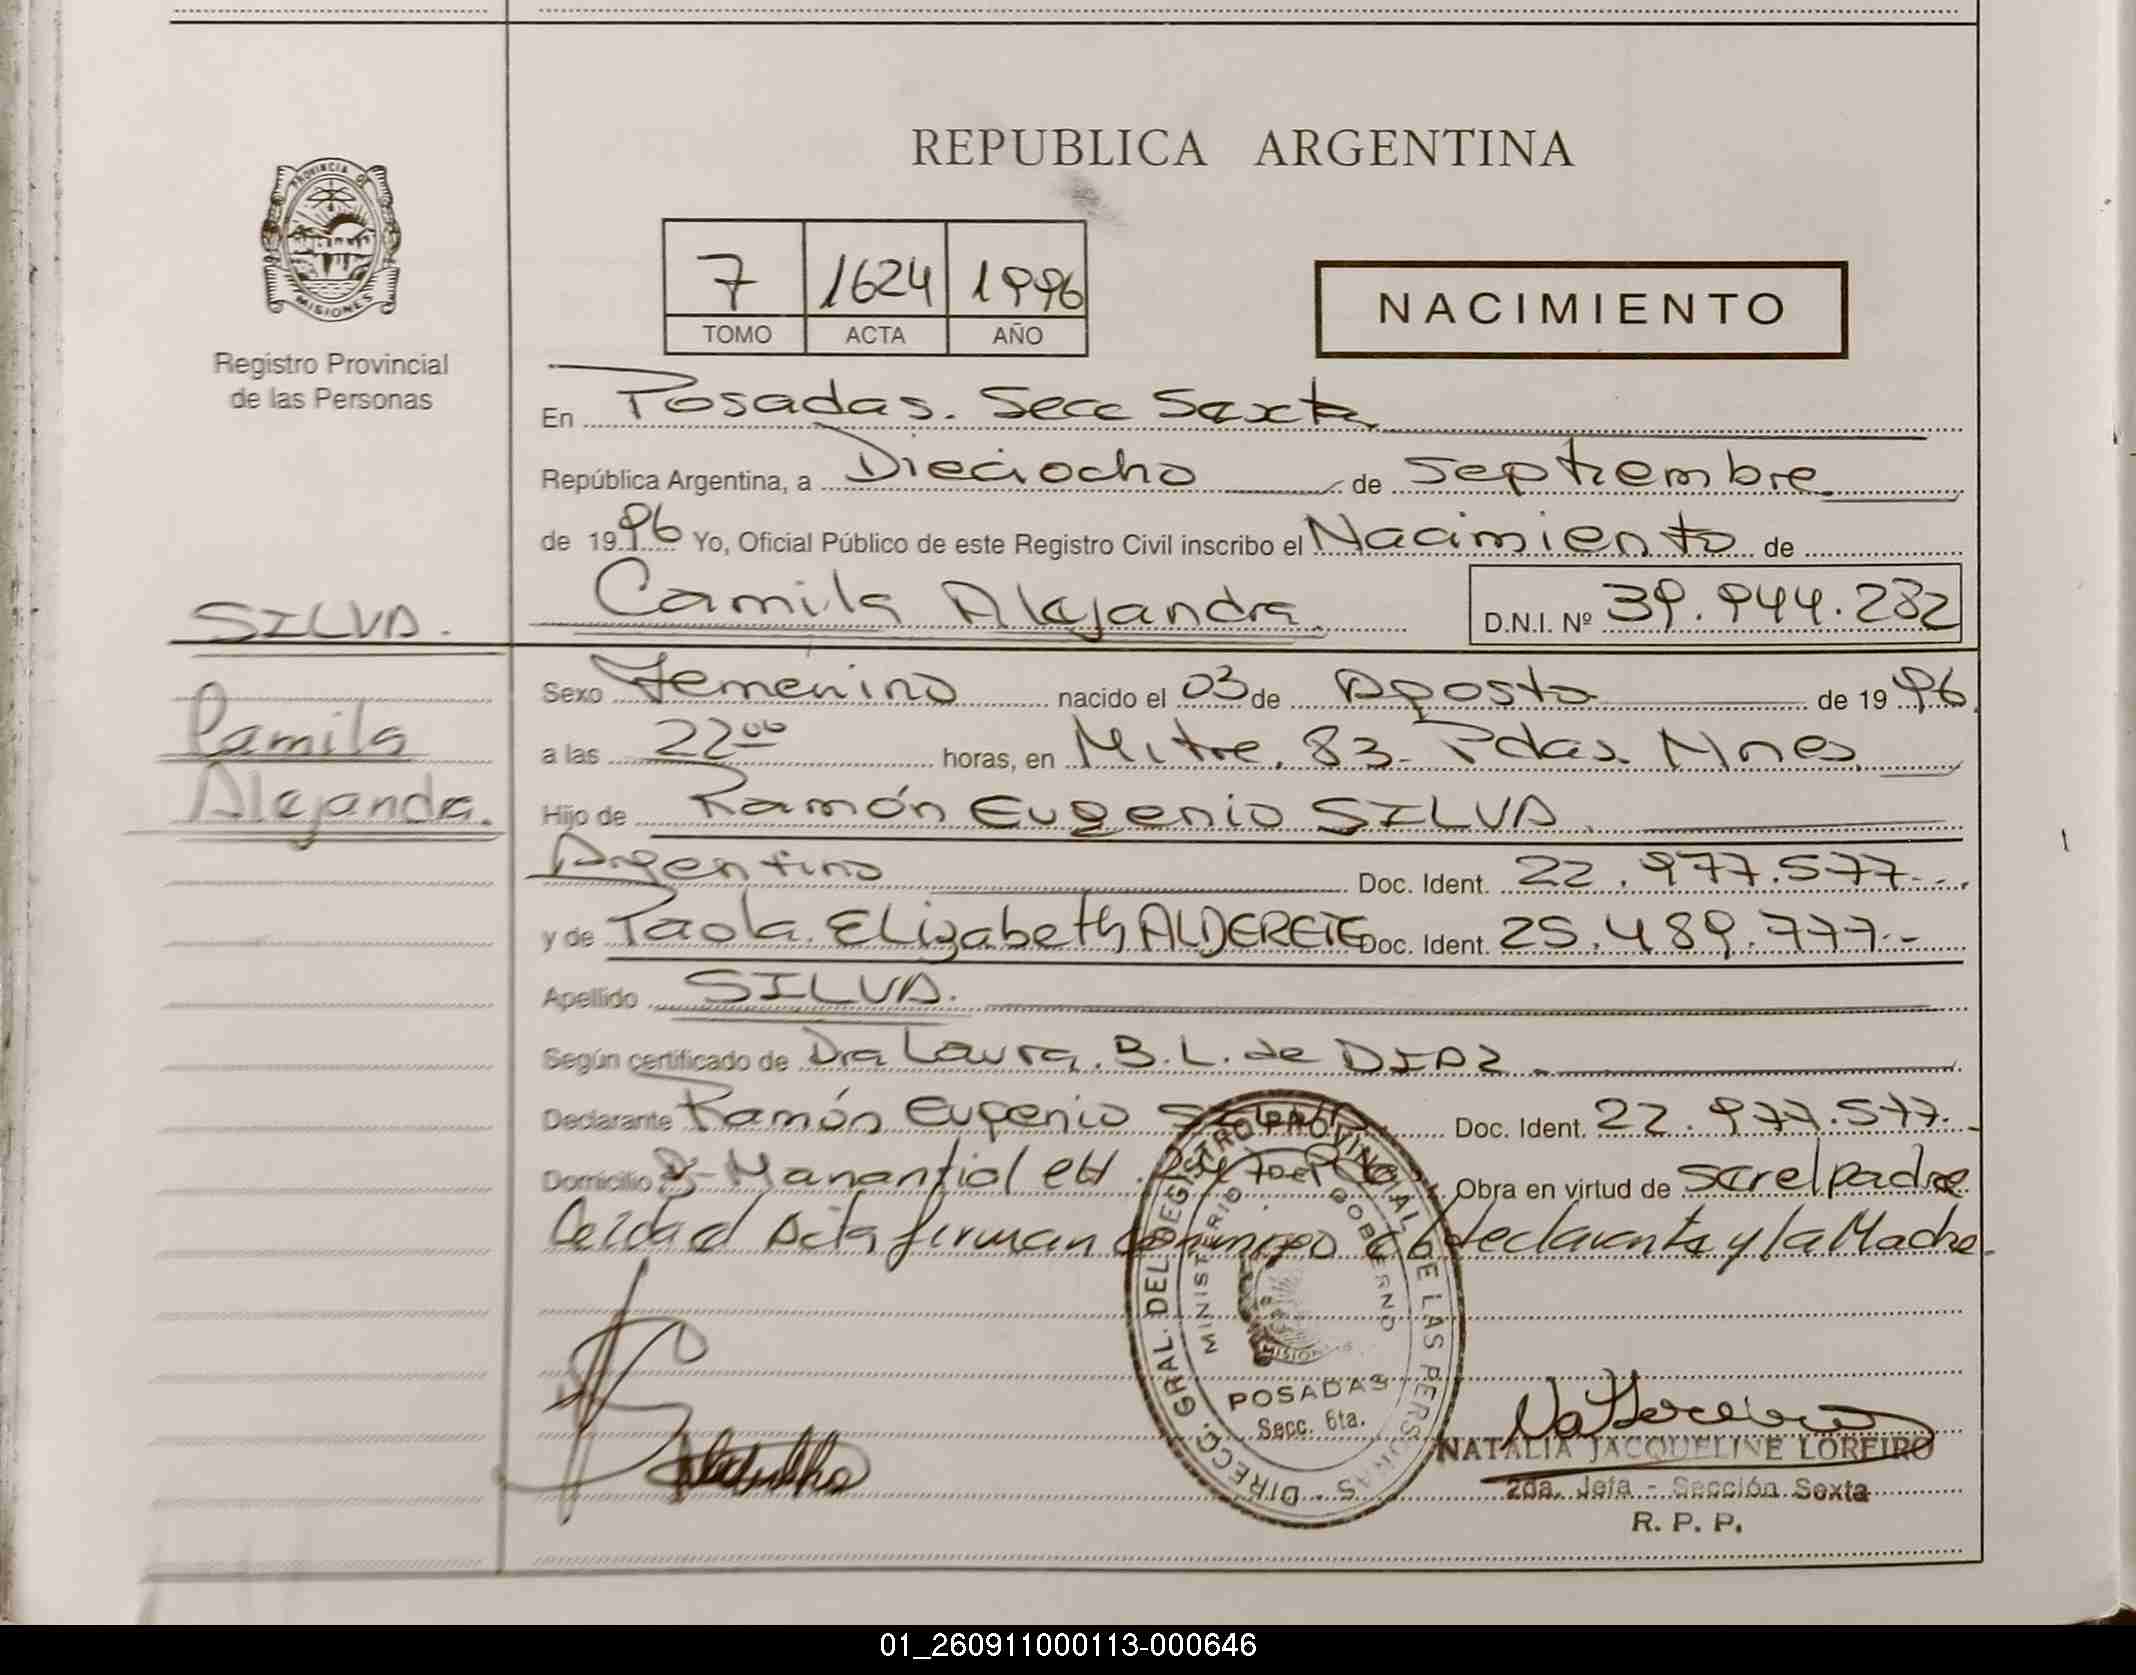 REPUBLICA ARGENTINA
PROVINCIA DE
MISIONES
Registro Provincial
de las Personas
7 1624 1996
TOMO ACTA AÑO
NACIMIENTO
En Posadas. Secc Sexta
República Argentina, a Dieciocho de Septiembre
de 1996 Yo, Oficial Público de este Registro Civil inscribo el Nacimiento de
Camila Alejandra. D.N.I. Nº 39.944.282
SILVA.
Camila
Alejandra.
Sexo Femenino nacido el 03 de Agosto de 1996
a las 22 00 horas, en Mitre. 83- Pdas. Mnes.
Hijo de Ramón Eugenio SILVA
Argentino Doc. Ident. 22.977.577-
y de Paola Elizabeth ALDERETE Doc. Ident. 25.489.777-
Apellido SILVA.
Según certificado de Dra Laura. B. L. de DIAZ.
Declarante Ramón Eugenio SILVA Doc. Ident. 22.977.577-
Domicilio Manantial Obra en virtud de ser el padre
Leída el Acta firman conmigo el declarante y la Madre.
DIRECC. GRAL. DEL REGISTRO PROVINCIAL DE LAS PERSONAS
MINISTERIO DE GOBIERNO
MISIONES
POSADAS
Secc. 6ta.
NATALIA JACQUELINE LOREIRO
2da. Jefa - Sección Sexta
R. P. P.
01_260911000113-000646